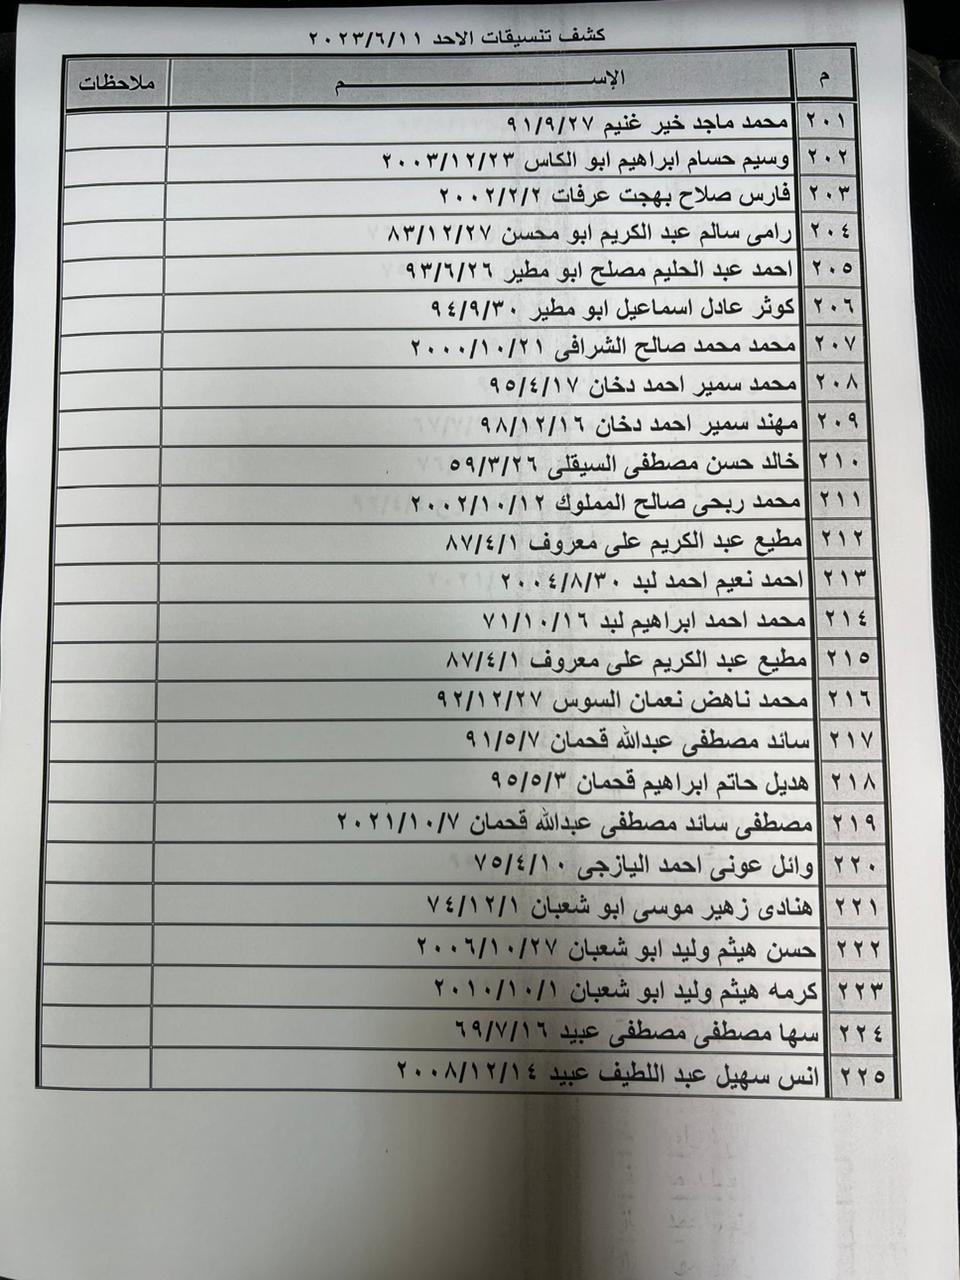 كشف تنسيقات الاحد ٢٠٢٣/٦/١١
م الإســـــــــــــــم ملاحظات
٢٠١ محمد ماجد خير غنيم ٩١/٩/٢٧
٢٠٢ وسيم حسام ابراهيم ابو الكاس ٢٠٠٣/١٢/٢٣
٢٠٣ فارس صلاح بهجت عرفات ٢٠٠٢/٢/٢
٢٠٤ رامى سالم عبد الكريم ابو محسن ٨٣/١٢/٢٧
٢٠٥ احمد عبد الحليم مصلح ابو مطير ٩٣/٦/٢٦
٢٠٦ كوثر عادل اسماعيل ابو مطير ٩٤/٩/٣٠
٢٠٧ محمد محمد صالح الشرافى ٢٠٠٠/١٠/٢١
٢٠٨ محمد سمير احمد دخان ٩٥/٤/١٧
٢٠٩ مهند سمير احمد دخان ٩٨/١٢/١٦
٢١٠ خالد حسن مصطفى السيقلى ٥٩/٣/٢٦
٢١١ محمد ربحى صالح المملوك ٢٠٠٢/١٠/١٢
٢١٢ مطيع عبد الكريم على معروف ٨٧/٤/١
٢١٣ احمد نعيم احمد لبد ٢٠٠٤/٨/٣٠
٢١٤ محمد احمد ابراهيم لبد ٧١/١٠/١٦
٢١٥ مطيع عبد الكريم على معروف ٨٧/٤/١
٢١٦ محمد ناهض نعمان السوس ٩٢/١٢/٢٧
٢١٧ سائد مصطفى عبدالله قحمان ٩١/٥/٧
٢١٨ هديل حاتم ابراهيم قحمان ٩٥/٥/٣
٢١٩ مصطفى سائد مصطفى عبدالله قحمان ٢٠٢١/١٠/٧
٢٢٠ وائل عونى احمد اليازجى ٧٥/٤/١٠
٢٢١ هنادى زهير موسى ابو شعبان ٧٤/١٢/١
٢٢٢ حسن هيثم وليد ابو شعبان ٢٠٠٦/١٠/٢٧
٢٢٣ كرمه هيثم وليد ابو شعبان ٢٠١٠/١٠/١
٢٢٤ سها مصطفى مصطفى عبيد ٦٩/٧/١٦
٢٢٥ انس سهيل عبد اللطيف عبيد ٢٠٠٨/١٢/١٤